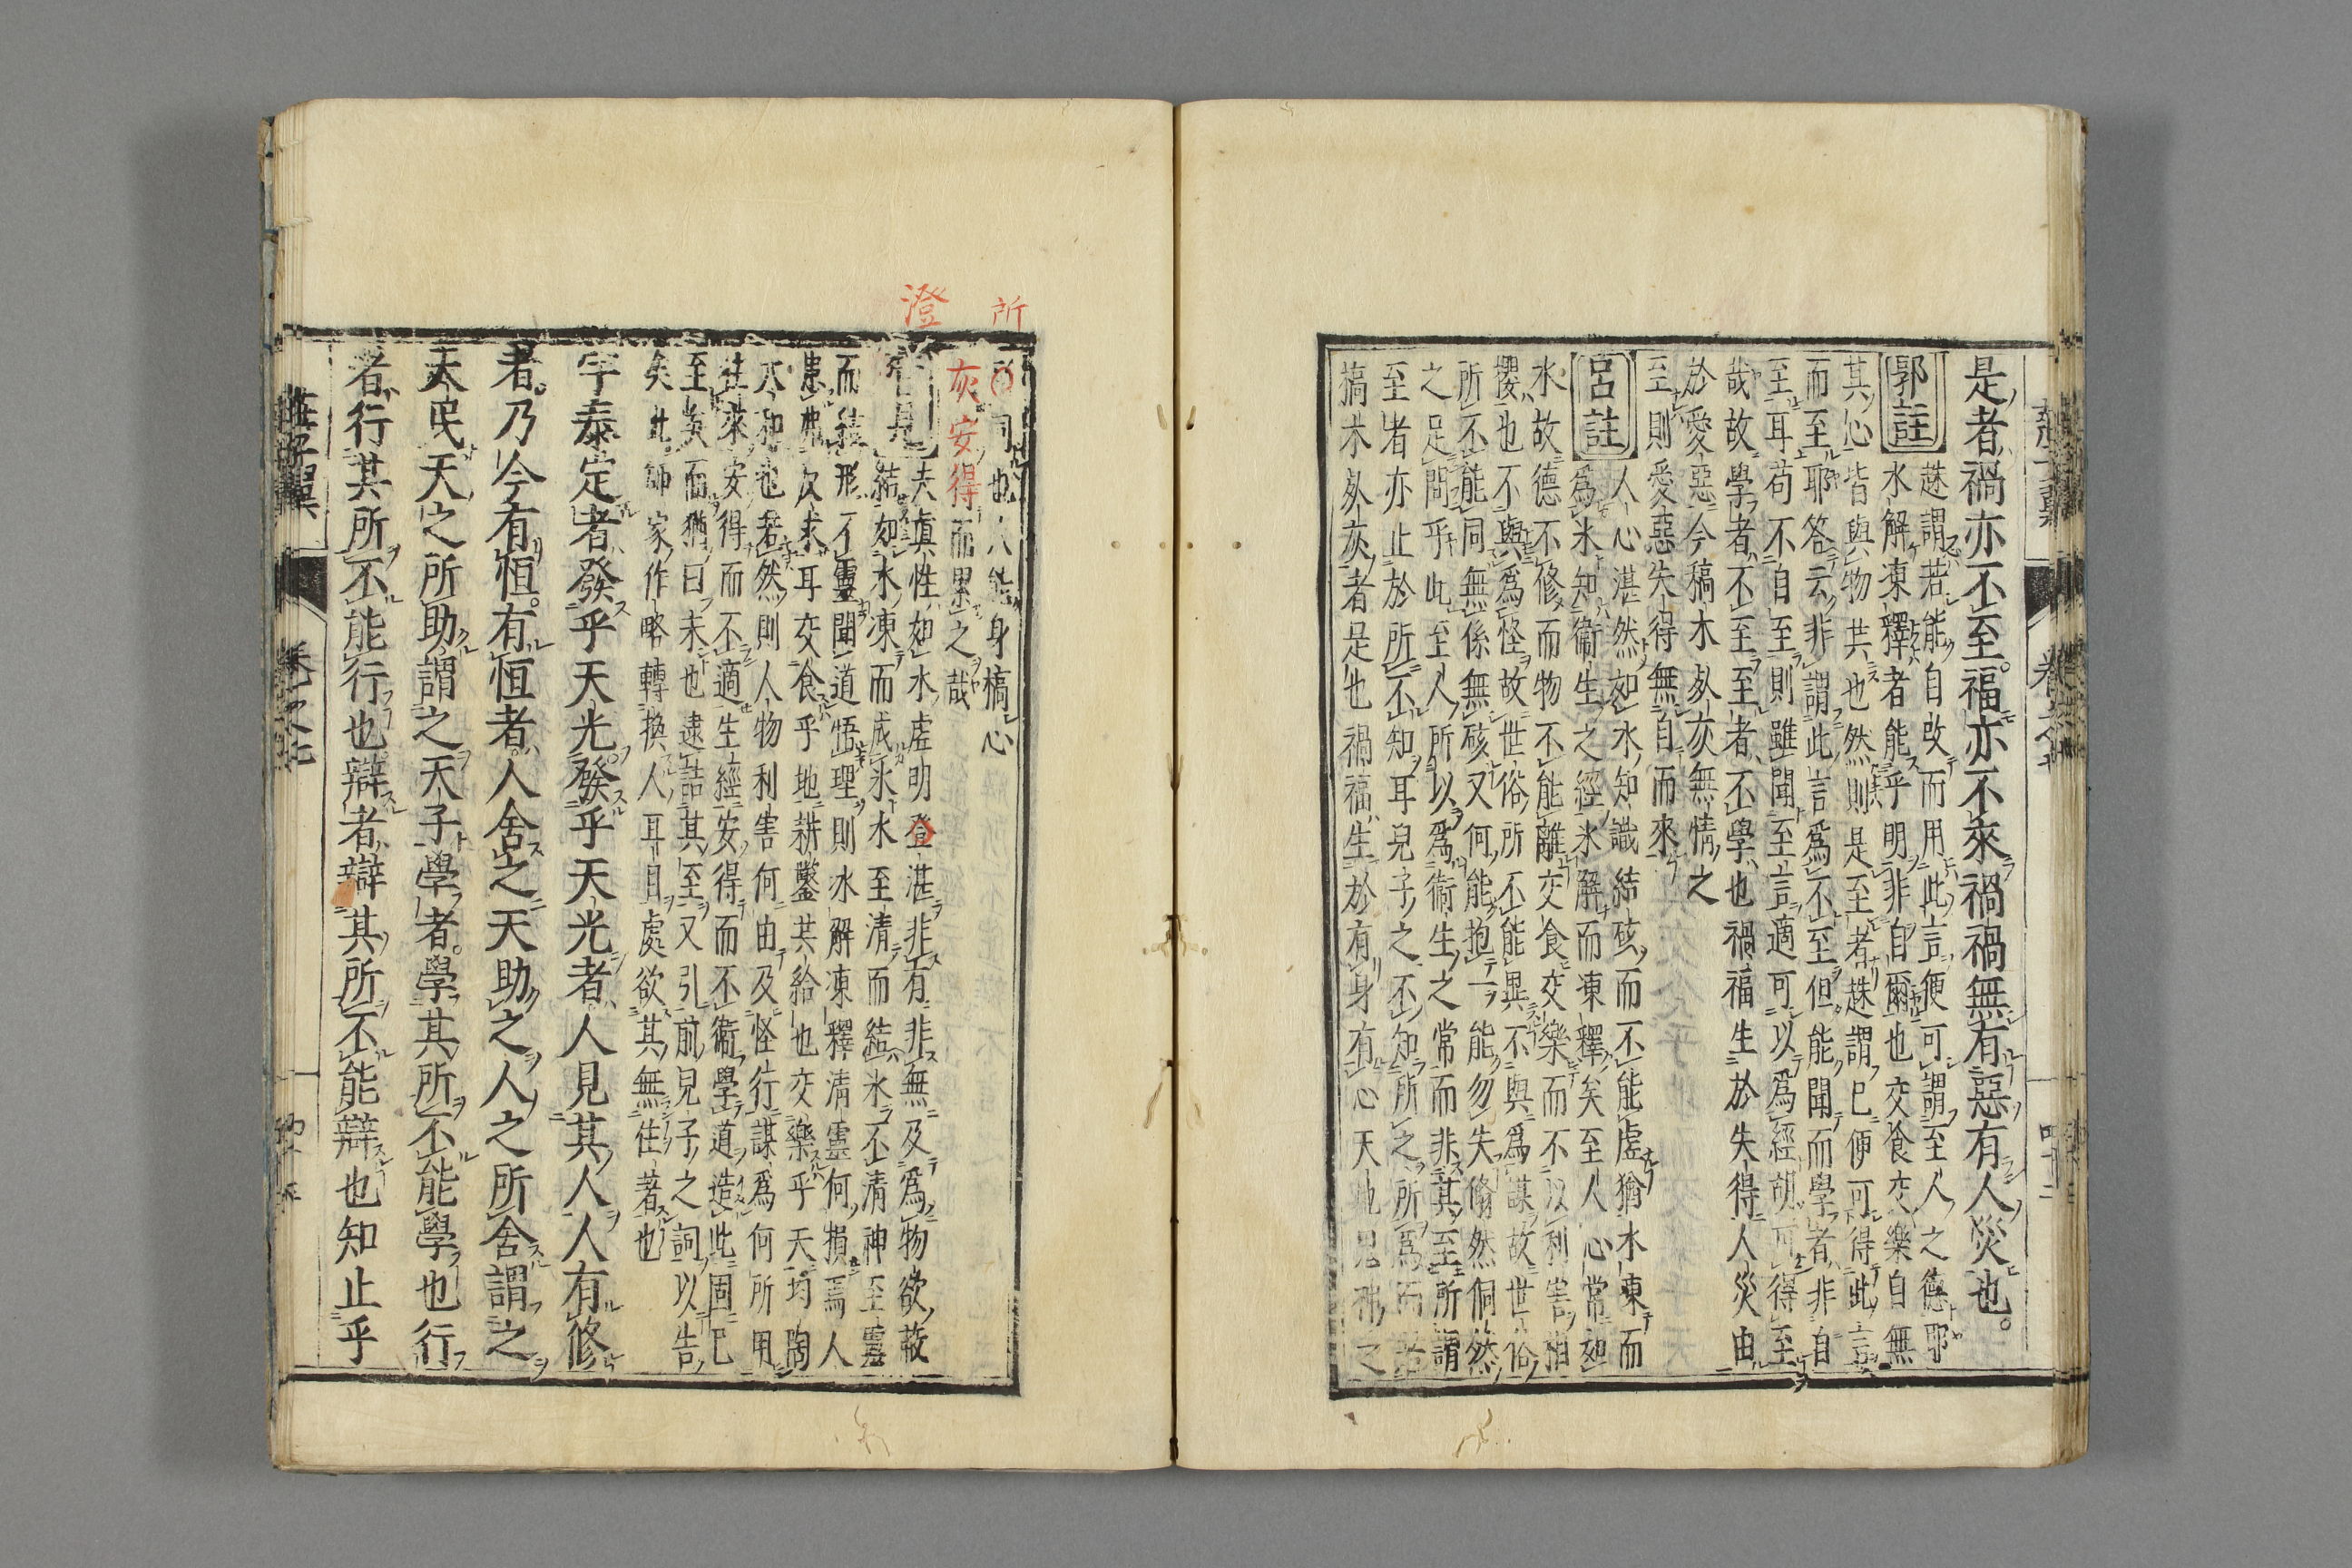 是者禍亦不至福亦不來禍禍無有惡有人災也
郭註
趎謂若能自改而用此言便可謂至人之德耶
水解凍釋者能乎明非自爾也交食交樂自無
其心皆與物共也然則是至者趎謂已便可得此言
而至耶答云非謂此言爲不至但能聞而學者非自
至耳苟不自至則雖聞至言適可以爲經胡可得至
哉故學者不至至者不學也禍福生於失得人災由
於愛惡今槁木死灰無情之
至則愛惡失得無自而來
呂註
人心湛然如水知識結硋而不能虛猶水凍而
爲氷知衞生之經氷解而凍釋矣至人心常如
水故德不修而物不能離交食交樂而不以利害相
攖也不與爲怪故世俗所不能異不與爲謀故世俗
所不能同無係無硋又何能抱一能勿失翛然侗然
之足問乎此至人所以爲衞生之常而非其至所謂
至者亦止於所不知耳兒子之不知所之所爲而若
槁木死灰者是也禍福生於有身有心天地鬼神之
所
所同也人能身槁心
灰安得而累之哉
澄
夫眞性如水虛明登湛非有非無及爲物欲蔽
結如水凍而成氷水至清而結氷不清神至靈
而結形不靈聞道悟理則氷解凍釋清靈何損焉人
患弗次求耳交食乎地耕鑿其給也交樂乎天均陶
大和也若然則人物利害何由及怪行謀爲何所用
往來安得而不適生經安得而不衞學道造此固已
至矣而猶曰未也逮詰其至又引前兒子之詞以告
矣此師家作略轉換人耳目處欲其無住著也
宇泰定者發乎天光發乎天光者人見其人人有修
者乃今有恒有恒者人舍之天助之人之所舍謂之
天民天之所助謂之天子學者學其所不能學也行
者行其所不能行也辯者辯其所不能辯也知止乎